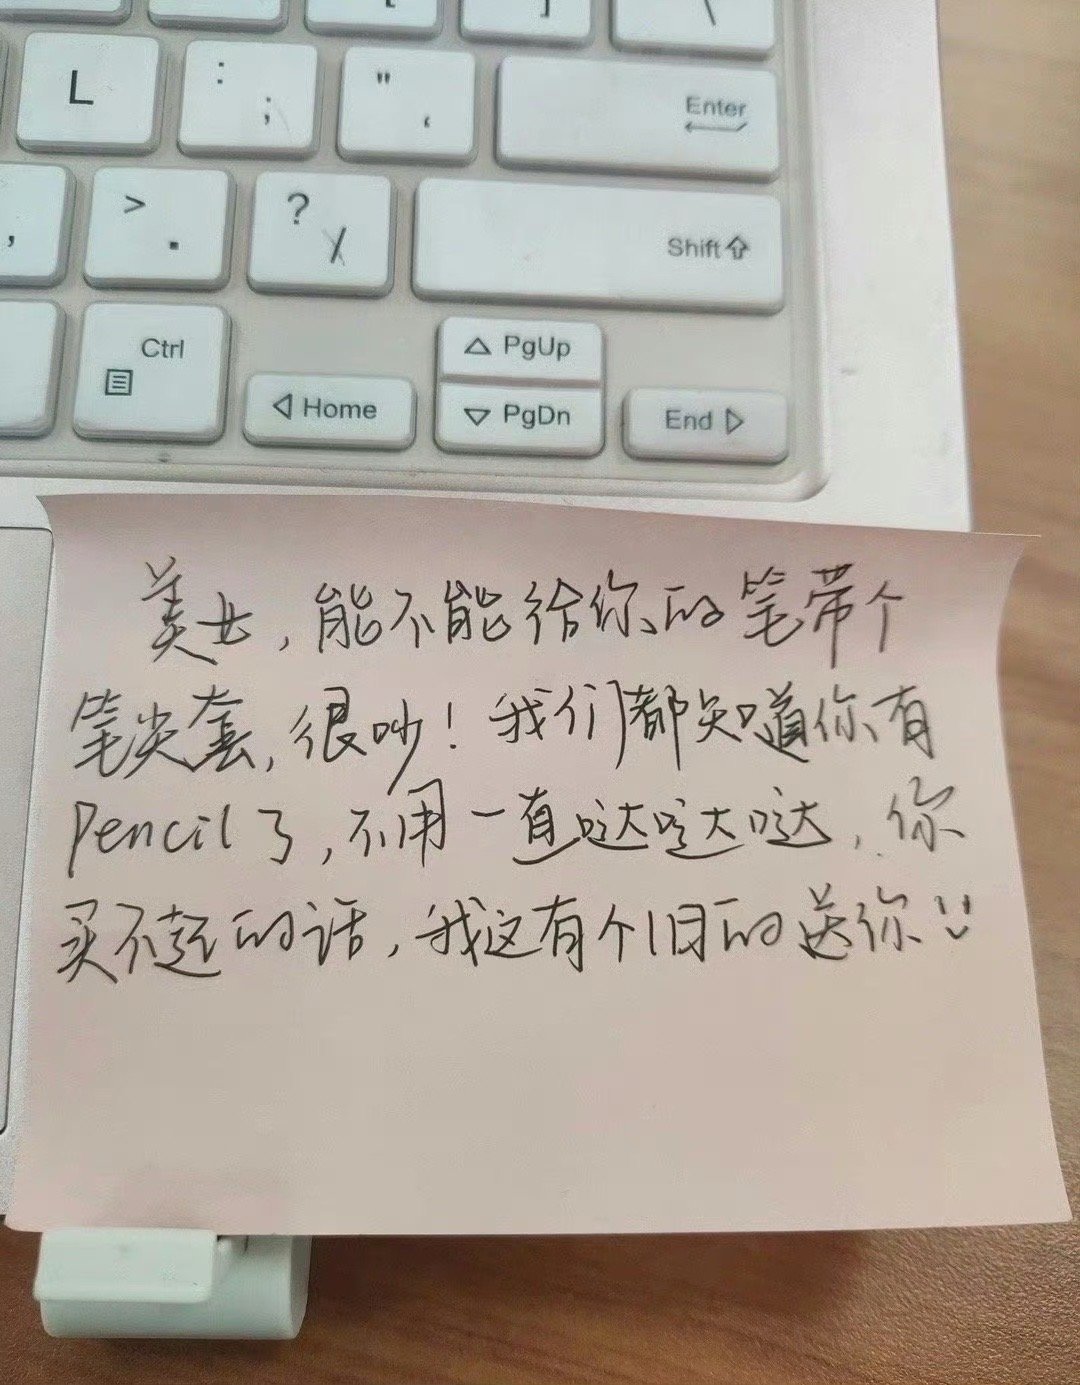 [ ] \
L : ; " ‘ Enter
, > . ? / Shift
Ctrl Home PgUp PgDn End
美女，能不能给你的笔带个
笔尖套，很吵！我们都知道你有
Pencil了，不用一直哒哒哒，你
买不起的话，我这有个旧的送你